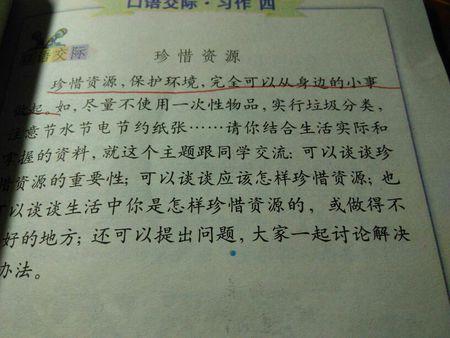 口语交际·习作 四
口语交际
珍惜资源
珍惜资源,保护环境,完全可以从身边的小事
做起。如,尽量不使用一次性物品,实行垃圾分类,
注意节水节电节约纸张……请你结合生活实际和
掌握的资料,就这个主题跟同学交流:可以谈谈珍
惜资源的重要性;可以谈谈应该怎样珍惜资源;也
可以谈谈生活中你是怎样珍惜资源的,或做得不
好的地方;还可以提出问题,大家一起讨论解决
办法。